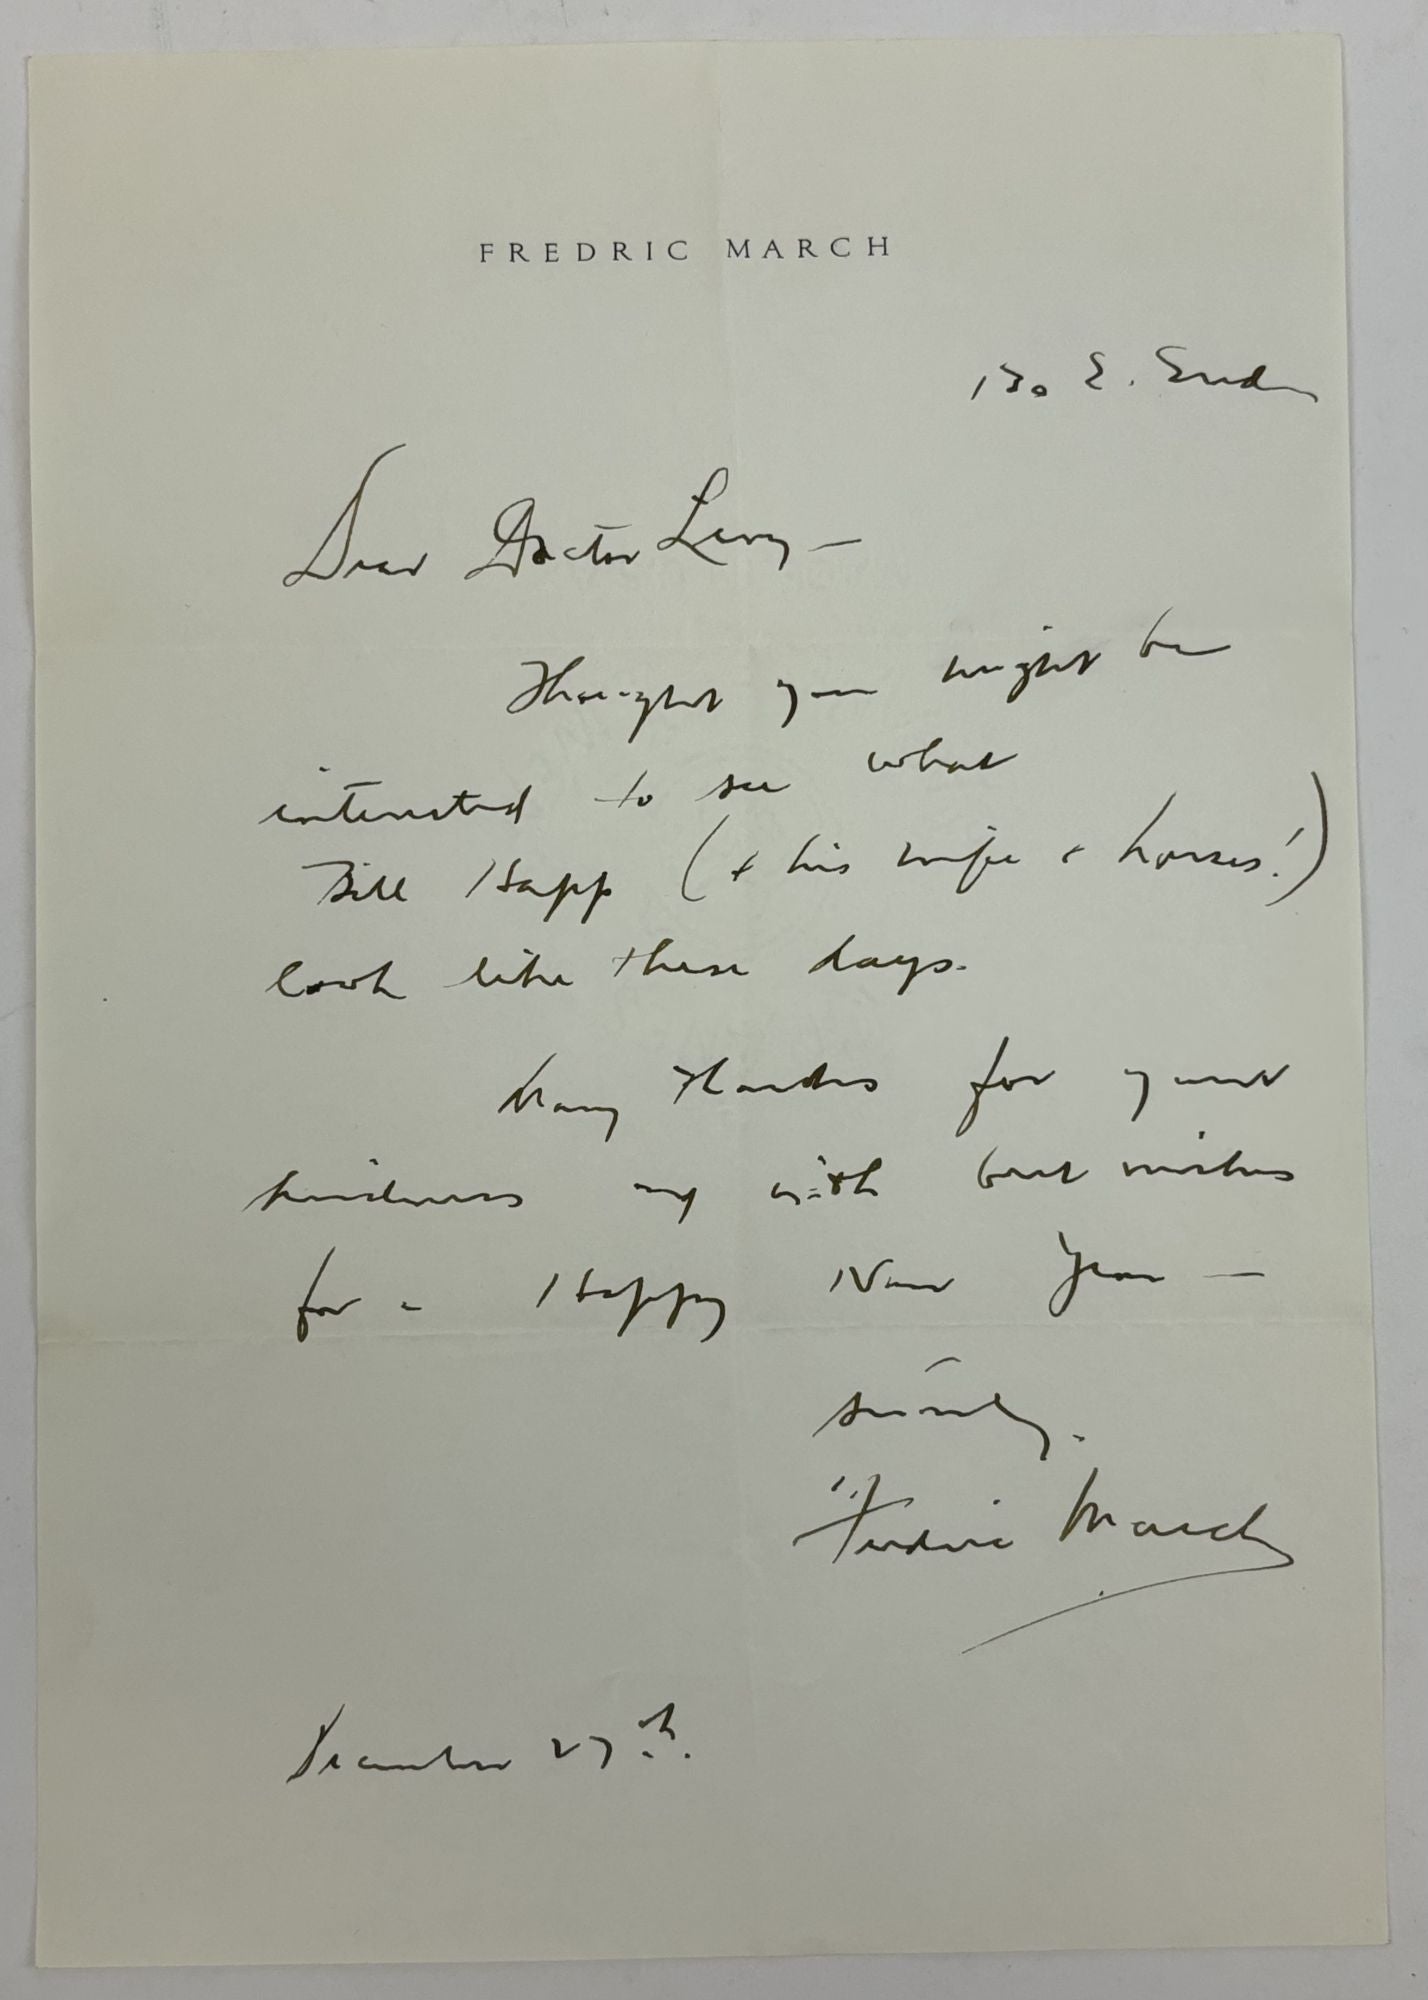 FREDRIC MARCH
130 E. End
Dear Doctor Levy —
Thought you might be
interested to see what
Bill Happ (+ his wife + horses!)
look like these days.
Many thanks for your
kindness and with best wishes
for a Happy New Year —
Sincerely,
Fredric March
December 27th.